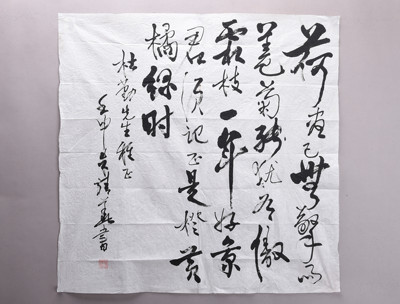 荷尽已無擎雨
盖菊残犹有傲
霜枝一年好景
君须记正是橙黄
橘绿时
杜勤先生雅正
壬申書